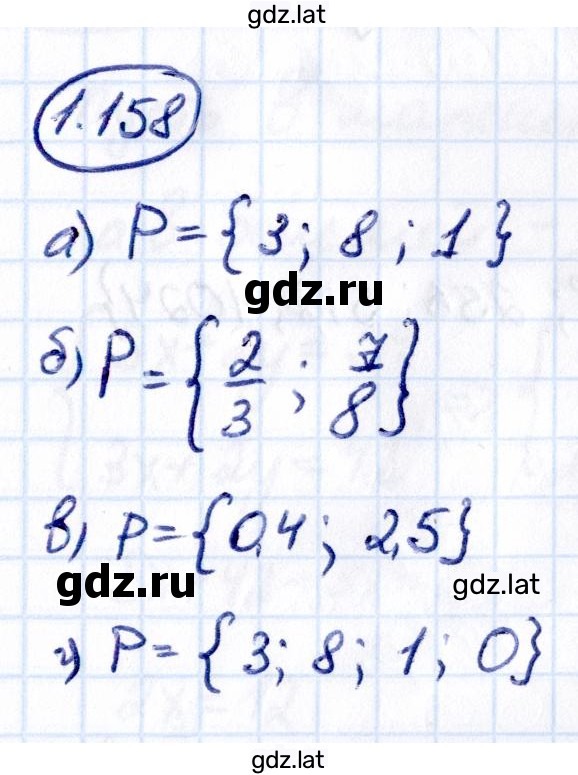 gdz.lat
1.158
а) P = {3; 8; 1}
gdz.ru
б) P = {2/3; 7/8}
в) P = {0,4; 2,5}
gdz.ru
gdz.lat
г) P = {3; 8; 1; 0}
gdz.lat